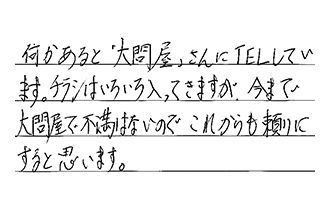 何かあると「大問屋」さんにTELしてい
ます。チラシはいろいろ入ってきますが、今まで
大問屋で不満はないので これからも頼りに
すると思います。